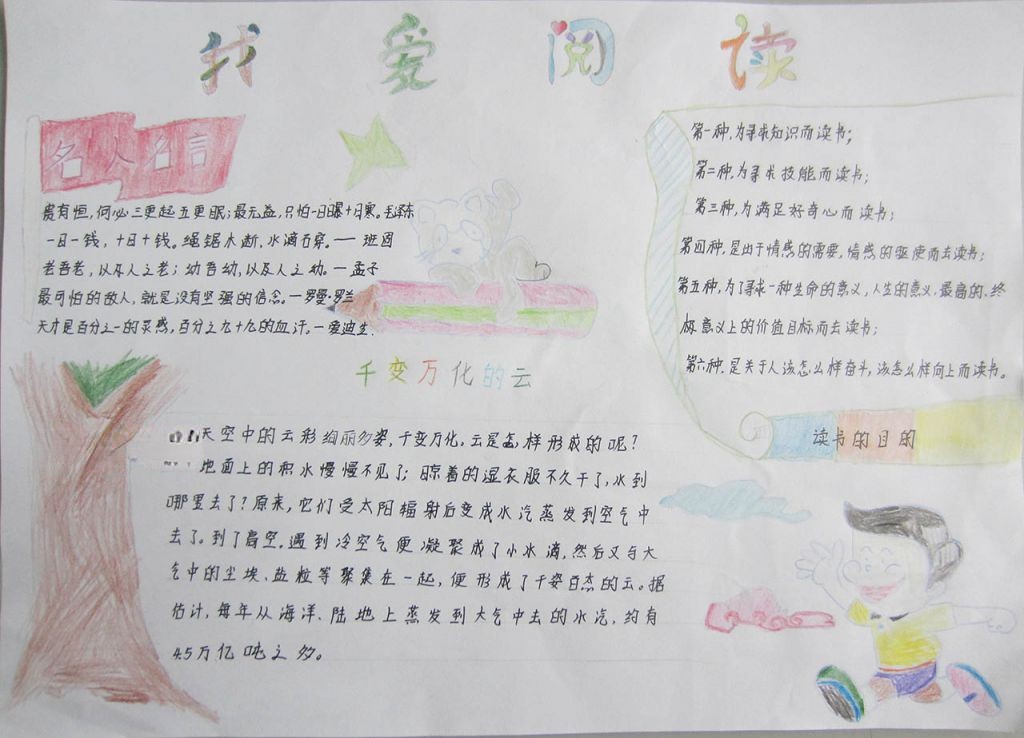 我爱阅读
名人名言
贵有恒,何必三更起五更眠;最无益,只怕一日曝十日寒。毛泽东
一日一钱,十日十钱。绳锯木断,水滴石穿。—— 班固
老吾老,以及人之老;幼吾幼,以及人之幼。—孟子
最可怕的敌人,就是没有坚强的信念。—罗曼·罗兰
天才是百分之一的灵感,百分之九十九的血汗。—爱迪生
第一种,为寻求知识而读书;
第二种,为寻求技能而读书;
第三种,为满足好奇心而读书;
第四种,是出于情感的需要,情感的驱使而去读书;
第五种,为了寻求一种生命的意义,人生的意义,最高的、终
极意义上的价值目标而去读书;
第六种,是关于人该怎么样奋斗,该怎么样向上而读书。
读书的目的
千变万化的云
天空中的云彩绚丽多姿,千变万化。云是怎样形成的呢?
地面上的积水慢慢不见了;晾着的湿衣服不久干了,水到
哪里去了?原来,它们受太阳辐射后变成水汽蒸发到空气中
去了。到了高空,遇到冷空气便凝聚成了小水滴,然后又与大
气中的尘埃、盐粒等聚集在一起,便形成了千姿百态的云。据
估计,每年从海洋、陆地上蒸发到大气中去的水汽,约有
4.5万亿吨之多。